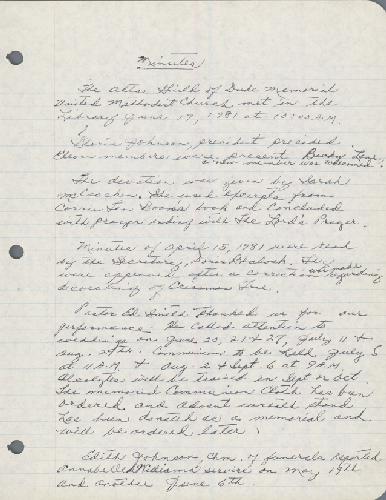 Minutes
The Altar Guild of Duke Memorial
United Methodist Church met in the
Library June 17, 1981 at 10:00 A.M.
Johnson, president presided
Eleven members were present. Bucky
a new member was welcomed.
The devotion was given by Sarah
She used excerpts from
Corrie Ten Booms book and concluded
with prayer ending with The Lord's Prayer.
Minutes of April 15, 1981 were read
by the Secretary, Doris Blalock. They
were approved after a correction was made regarding
a covering of
Pastor Ed Smith thanked us for our
performance. He called attention to
weddings on June 20, 21 & 27, July 11 &
Aug. 29th. Communion to be held July 5
at 11 A.M. & Aug. 2 & Sept 6 at 9 A.M.
Acolytes will be trained in Sept or Oct.
The memorial Communion Cloth has been
ordered and Advent wreath stand
has been donated as a memorial and
will be ordered later.
Edith Johnson, Chm. of funerals reported
Williams service on May 19th
and another June 6th.